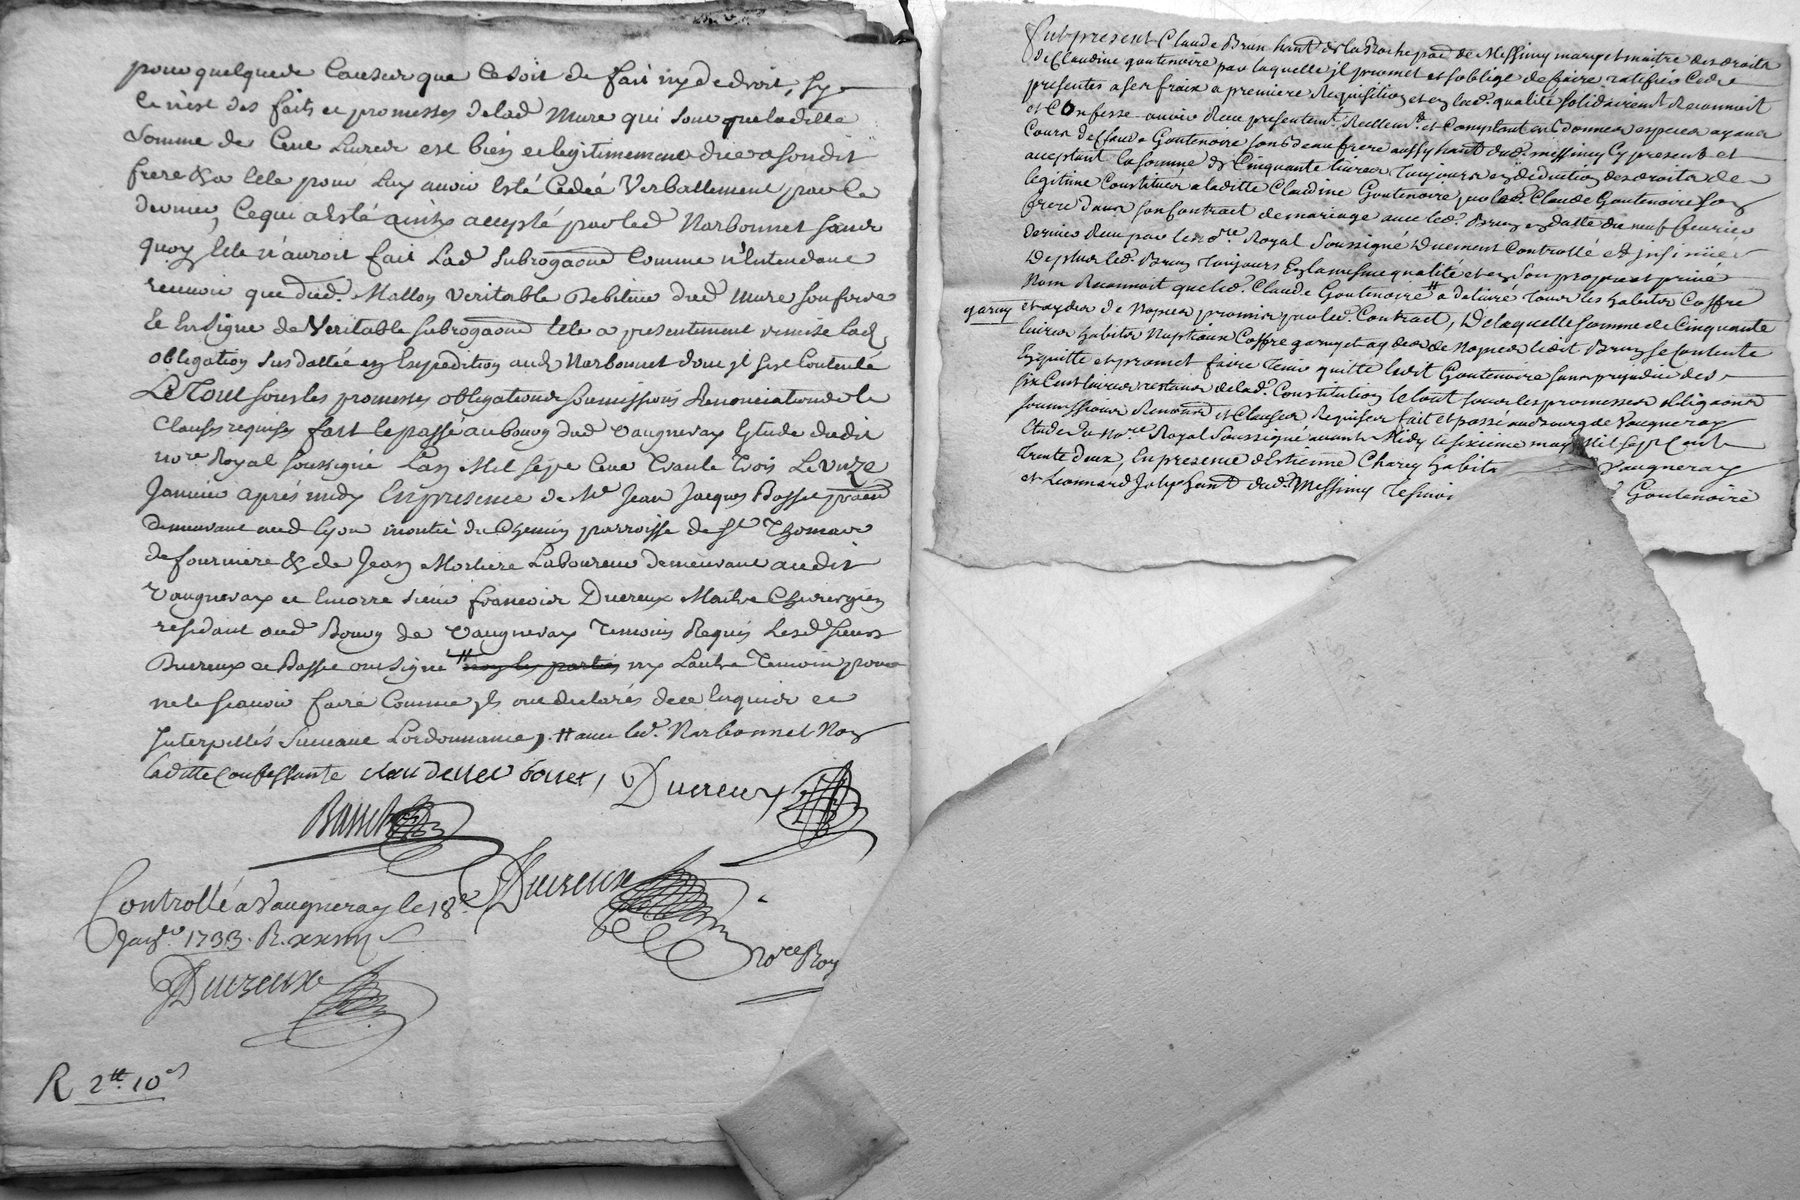 pour quelque Cause que ce soit de fait ny de droit, sy
Ce n'est des faits et promesses de lad Mure qui sont que ladite
Somme de Cent Livres est bien et legitimement due a sondit
frere & a Elle pour Luy avoir Esté Cedeé Verballement par le
dernier, Ce qui a Esté ainsy accepté par led Narbonnet sans
quoy Elle n'auroit fait Lad Subrogaōn Comme n'Entendant
que dud. Mallon Veritable Debiteur dud Mure son frere
Et En signe de Veritable Subrogaōn Elle a presentement remise lad
obligation susdattée en Expedition aud Narbonnet dont il s'est Contenté
Le Tout sous les promesses obligations soumissions Renonciations et
Clauses requises fait et passé au bourg dud Vaugneray Etude dudit
no.re Royal soussigné Lan Mil sept Cent Trante Trois Le unze
Janvier aprés midy En presence de Mr Jean Jacques Basset
demeurant aud Lyon montée du Chemin parroisse de St Thomas
de fourviere & de Jean Morliere Laboureur demeurant audit
Vaugneray et Encorre sieur francois Ducreux Maitre Chirurgien
residant aud Bourg de Vaugneray Temoins Requis Lesd sieurs
Ducreux et Basset ont signé # ny Lautre Temoin pour
ne le scavoir faire Comme ils ont declarés de ce Enquis et
Interpellés suivant Lordonnance, # avec led. Narbonnet Non
laditte Confessante
Basset Ducreux
Controllé a Vaugneray le 18e Ducreux
Janv.er 1733. R. no.re Roy
Ducreux
R 2tt 10s
fut present Claude Brun hant de la Roche de Messimy mary et maitre des droits
de Claudine goutenoire par laquelle il promet et s'oblige de faire ratifier Ces
presentes a ses fraix a premiere Requisition et en lad. qualité solidairement Reconnoit
et Confesse avoir Receu presentemt. Reellemt. et Comptant en bonnes especes ayant
Cours de Claude Goutenoire son beau frere aussy hant dud. Messimy Cy present et
acceptant la somme de Cinquante livres Toujours en deduction des droits de
legitime Constitués a laditte Claudine Goutenoire par led. Claude Goutenoire son
frere dans son Contract de mariage avec led. Brun en datte du neuf fevrier
dernier Receu par le no.re Royal Soussigné Duement Controllé et insinué
De plus led. Brun Toujours En la mesme qualité et en Son propre et privé
Nom Reconnoit que led. Claude Goutenoire # a delivré Tous les habits Coffre
garny et aydes de Nopces promis par led. Contract, De laquelle somme de Cinquante
livres habits Nuptiaux Coffre garny et aydes de Nopces ledit Brun se Contente
En quitte et promet faire Tenir quitte ledit Goutenoire sans prejudice des
six Cent livres restans de lad. Constitution le tout sous les promesses obligaons
soumissions Renonons et Clauses Requises fait et passé aud bourg de Vaugneray
etude du No.re Royal Soussigné avant Midy le sixieme may Mil sept Cent
Trente deux, En presence d'Estienne Charey habit Vaugneray
et Leonnard Joly hant dud. Messimy Tesmoi Goutenoire